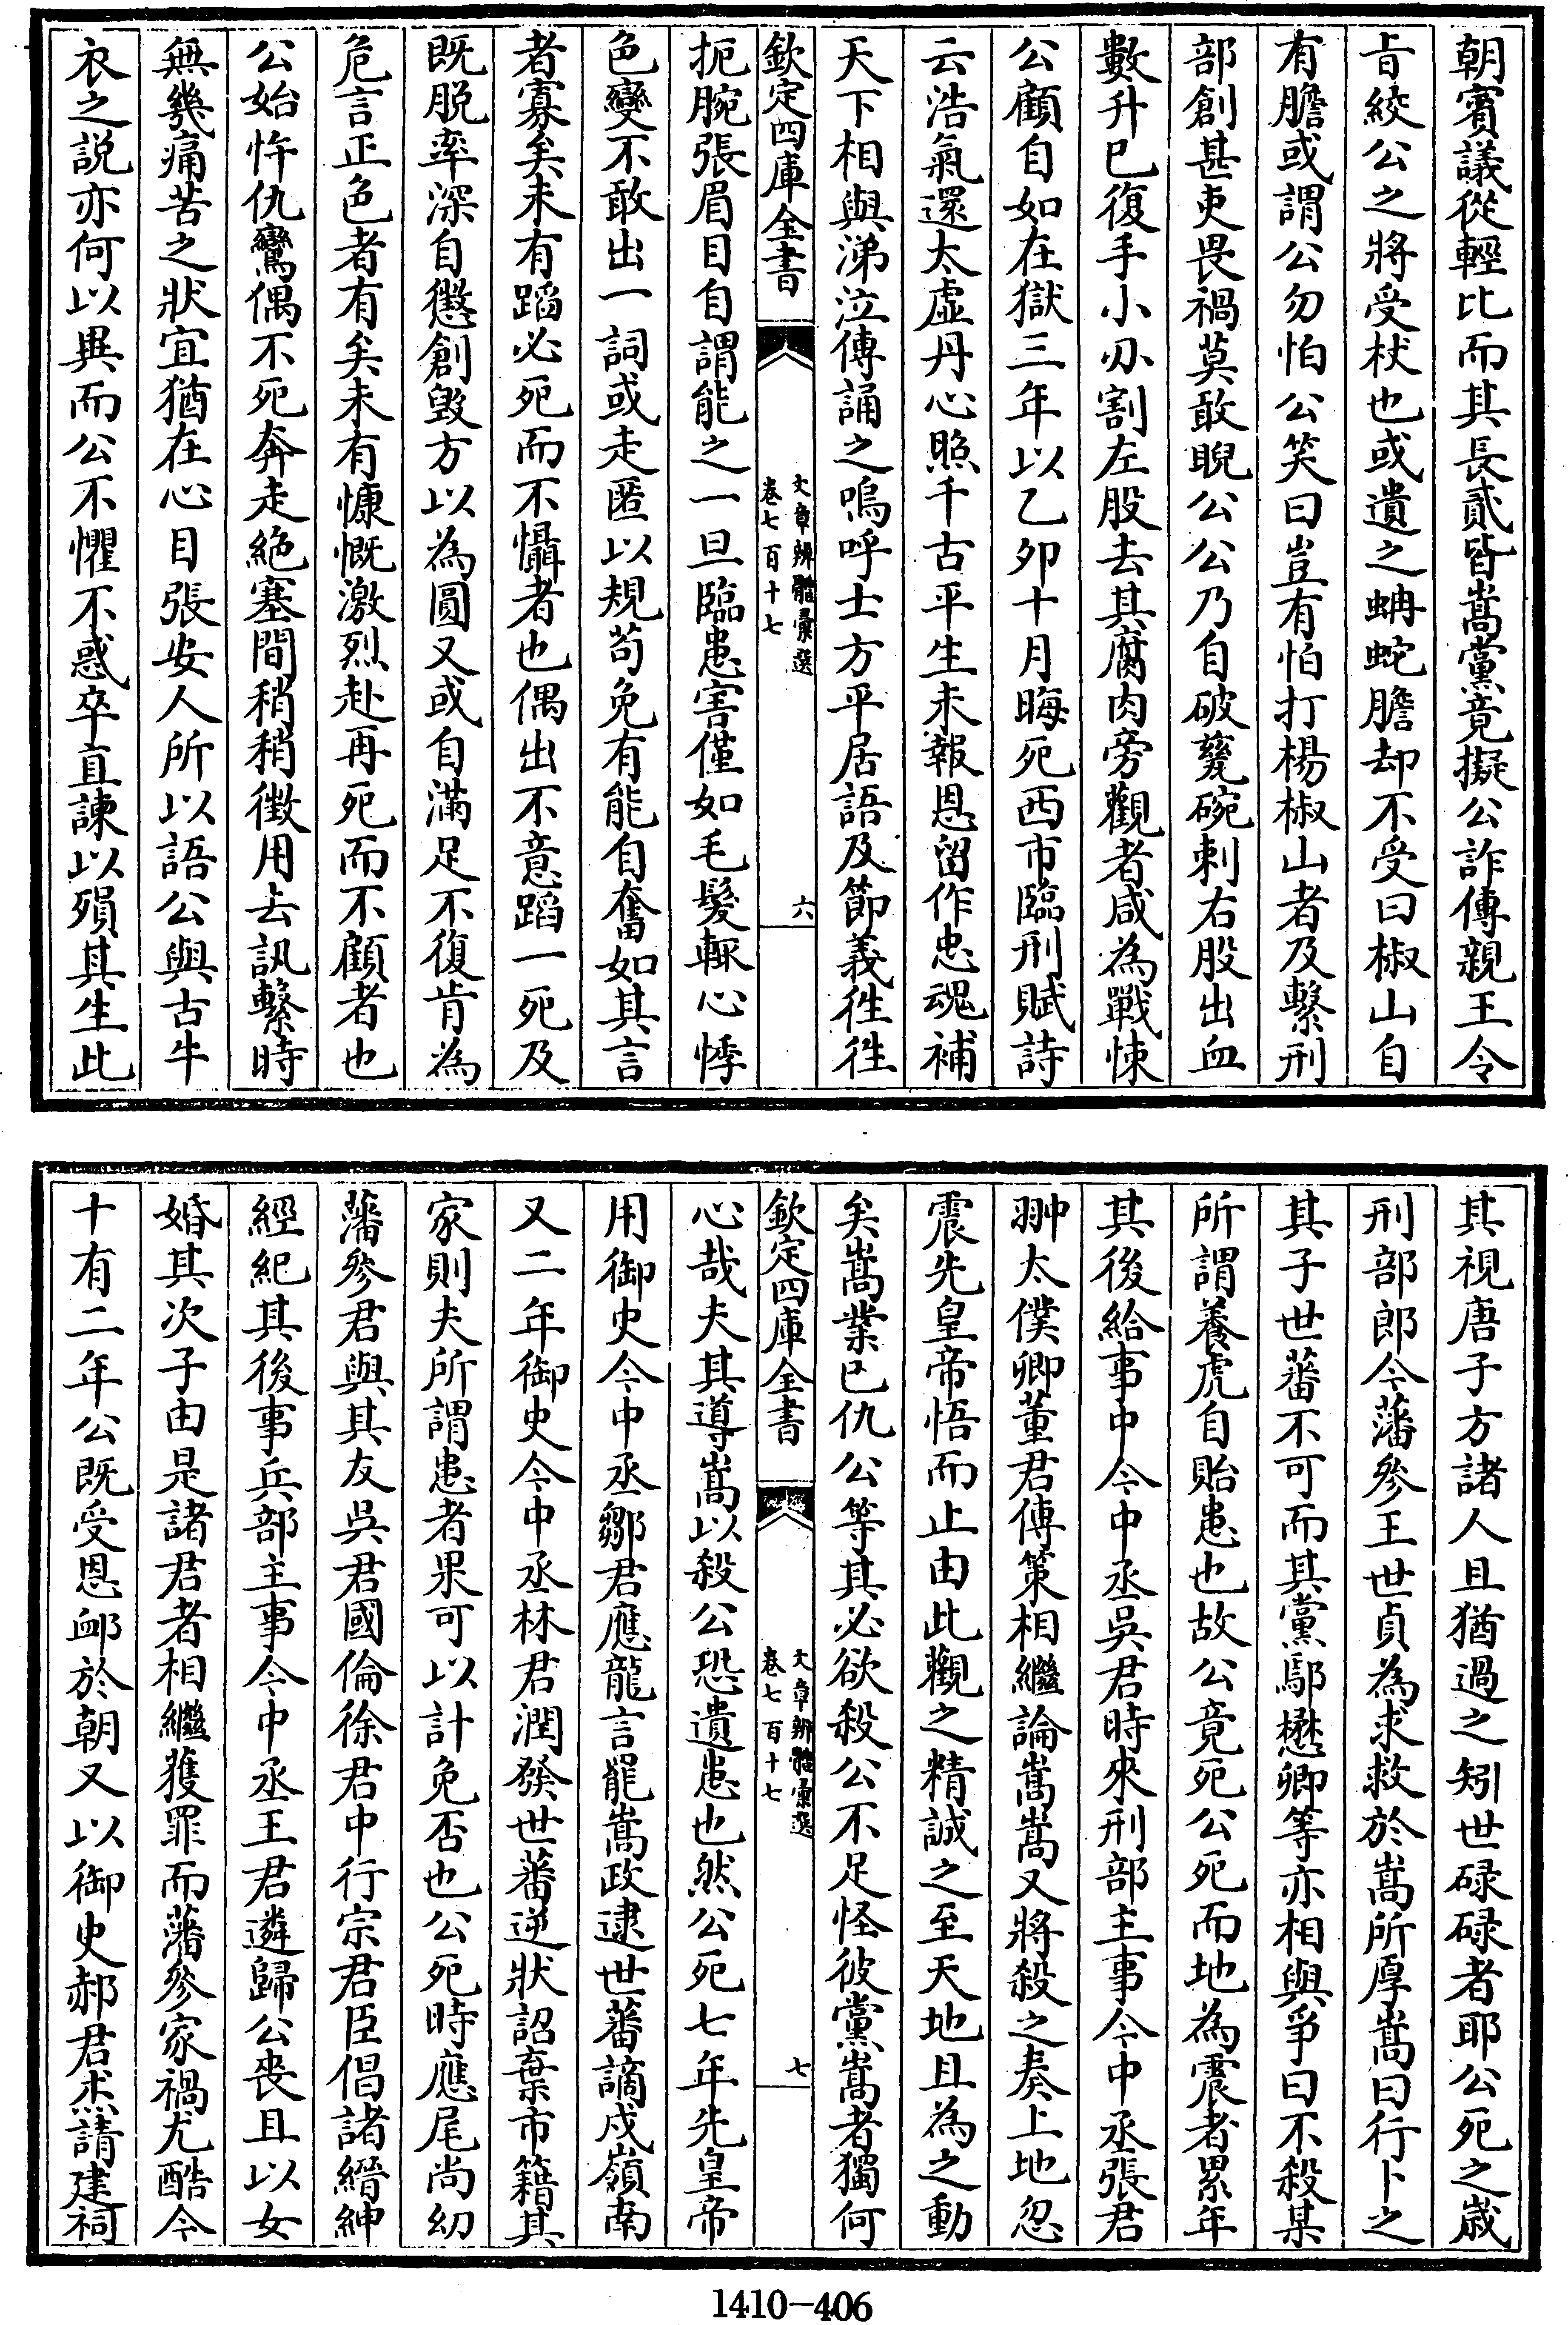 朝賓議從輕比而其長貳皆嵩黨竟擬公詐傳親王令
㫖絞公之將受杖也或遺之蚺蛇膽却不受曰椒山自
有膽或謂公勿怕公笑曰豈有怕打楊椒山者及繫刑
部創甚吏畏禍莫敢睨公公乃自破甆碗刺右股出血
數升已復手小刅割左股去其腐肉旁觀者咸為戰悚
公顧自如在獄三年以乙夘十月晦死西市臨刑賦詩
云浩氣還太虛丹心照千古平生未報恩留作忠魂補
天下相與涕泣傳誦之嗚呼士方平居語及節義徃徃
欽定四庫全書
文章辨體彙選
卷七百十七
六
扼腕張眉目自謂能之一旦臨患害僅如毛髮輒心悸
色變不敢出一詞或走匿以規茍免有能自奮如其言
者寡矣未有蹈必死而不懾者也偶出不意蹈一死及
既脱率深自懲創毀方以為圓又或自滿足不復肯為
危言正色者有矣未有慷慨激烈赴再死而不顧者也
公始忤仇鸞偶不死奔走絶塞間稍稍徴用去訊繫時
無幾痛苦之狀宜猶在心目張安人所以語公與古牛
衣之説亦何以異而公不懼不惑卒直諫以殞其生此
其視唐子方諸人且猶過之矧世碌碌者耶公死之嵗
刑部郎今藩參王世貞為求救於嵩所厚嵩曰行卜之
其子世蕃不可而其黨鄢懋卿等亦相與爭曰不殺某
所謂養虎自貽患也故公竟死公死而地為震者累年
其後給事中今中丞吳君時來刑部主事今中丞張君
翀太僕卿董君傳策相繼論嵩嵩又將殺之奏上地忽
震先皇帝悟而止由此觀之精誠之至天地且為之動
矣嵩業已仇公等其必欲殺公不足怪彼黨嵩者獨何
欽定四庫全書
文章辨體彙選
卷七百十七
七
心哉夫其導嵩以殺公恐遺患也然公死七年先皇帝
用御史今中丞鄒君應龍言罷嵩政逮世蕃謫戍嶺南
又二年御史今中丞林君潤發世蕃逆狀詔棄市籍其
家則夫所謂患者果可以計免否也公死時應尾尚幼
藩參君與其友吳君國倫徐君中行宗君臣倡諸縉紳
經紀其後事兵部主事今中丞王君遴歸公喪且以女
婚其次子由是諸君者相繼獲罪而藩參家禍尤酷今
十有二年公既受恩䘏於朝又以御史郝君杰請建祠
1410-406